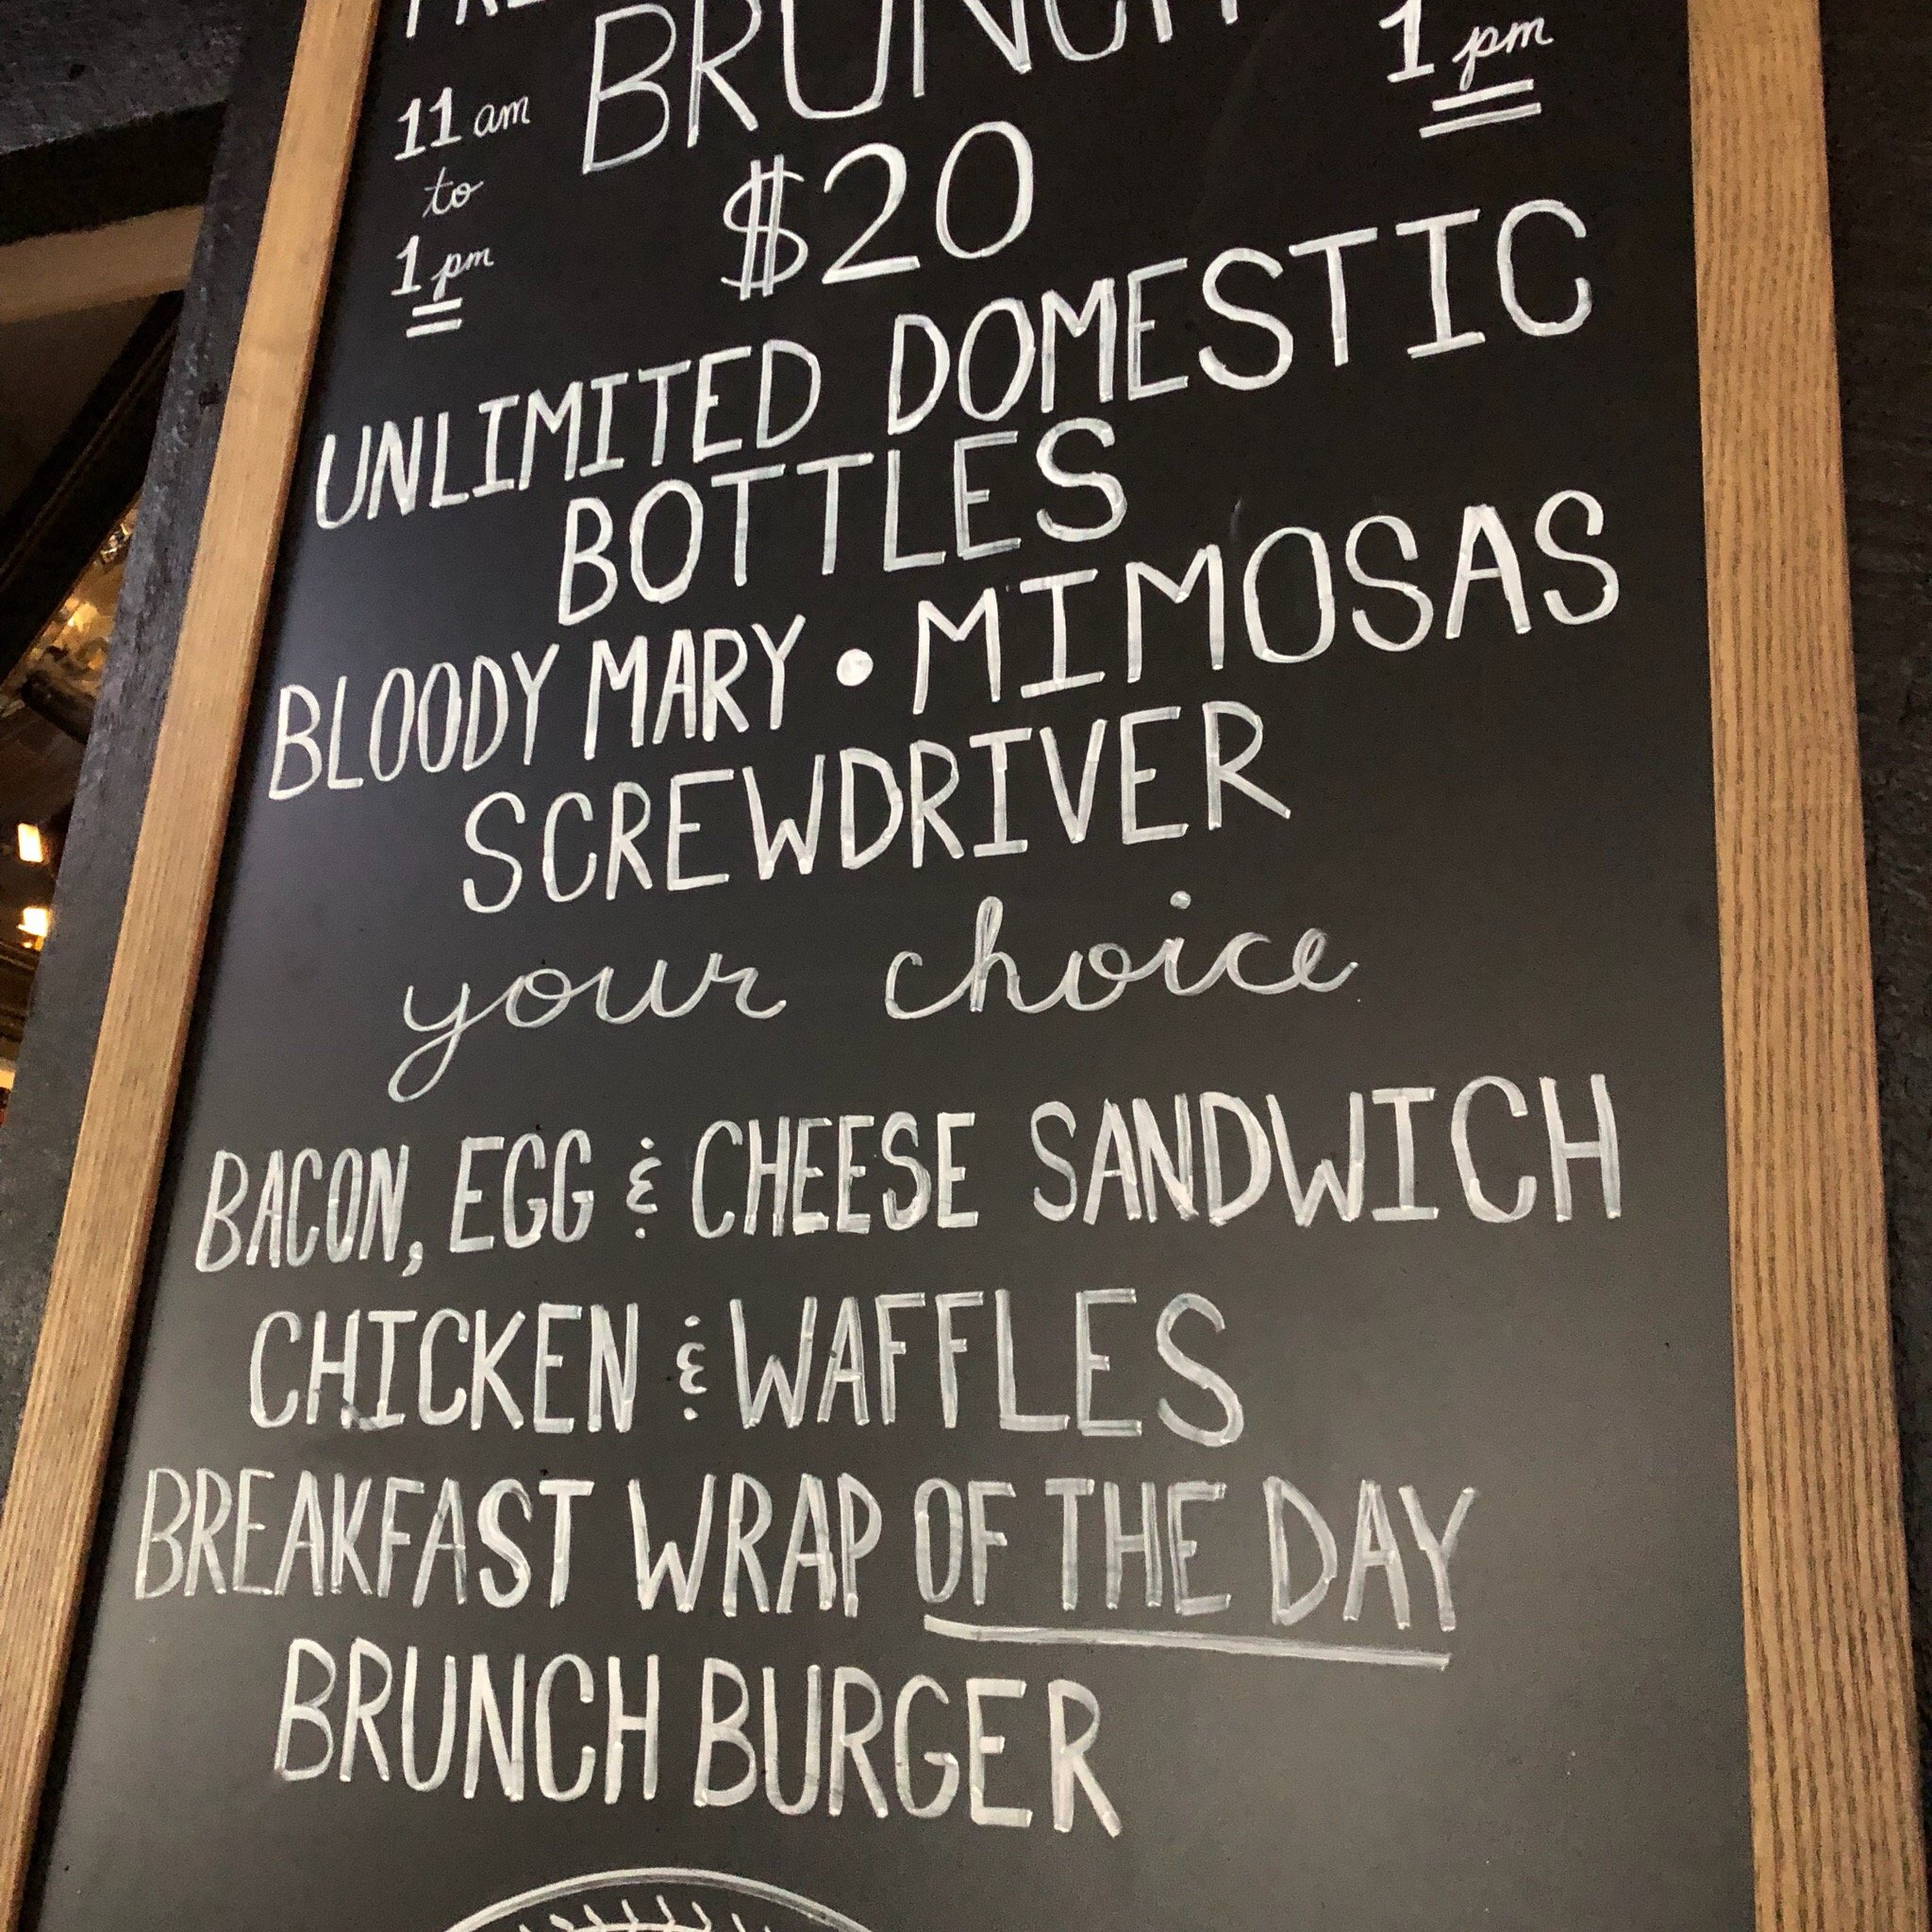 BRUNCH
1 pm
11 am
to
1 pm
$20
UNLIMITED DOMESTIC
BOTTLES
BLOODY MARY • MIMOSAS
SCREWDRIVER
your choice
BACON, EGG & CHEESE SANDWICH
CHICKEN & WAFFLES
BREAKFAST WRAP OF THE DAY
BRUNCH BURGER